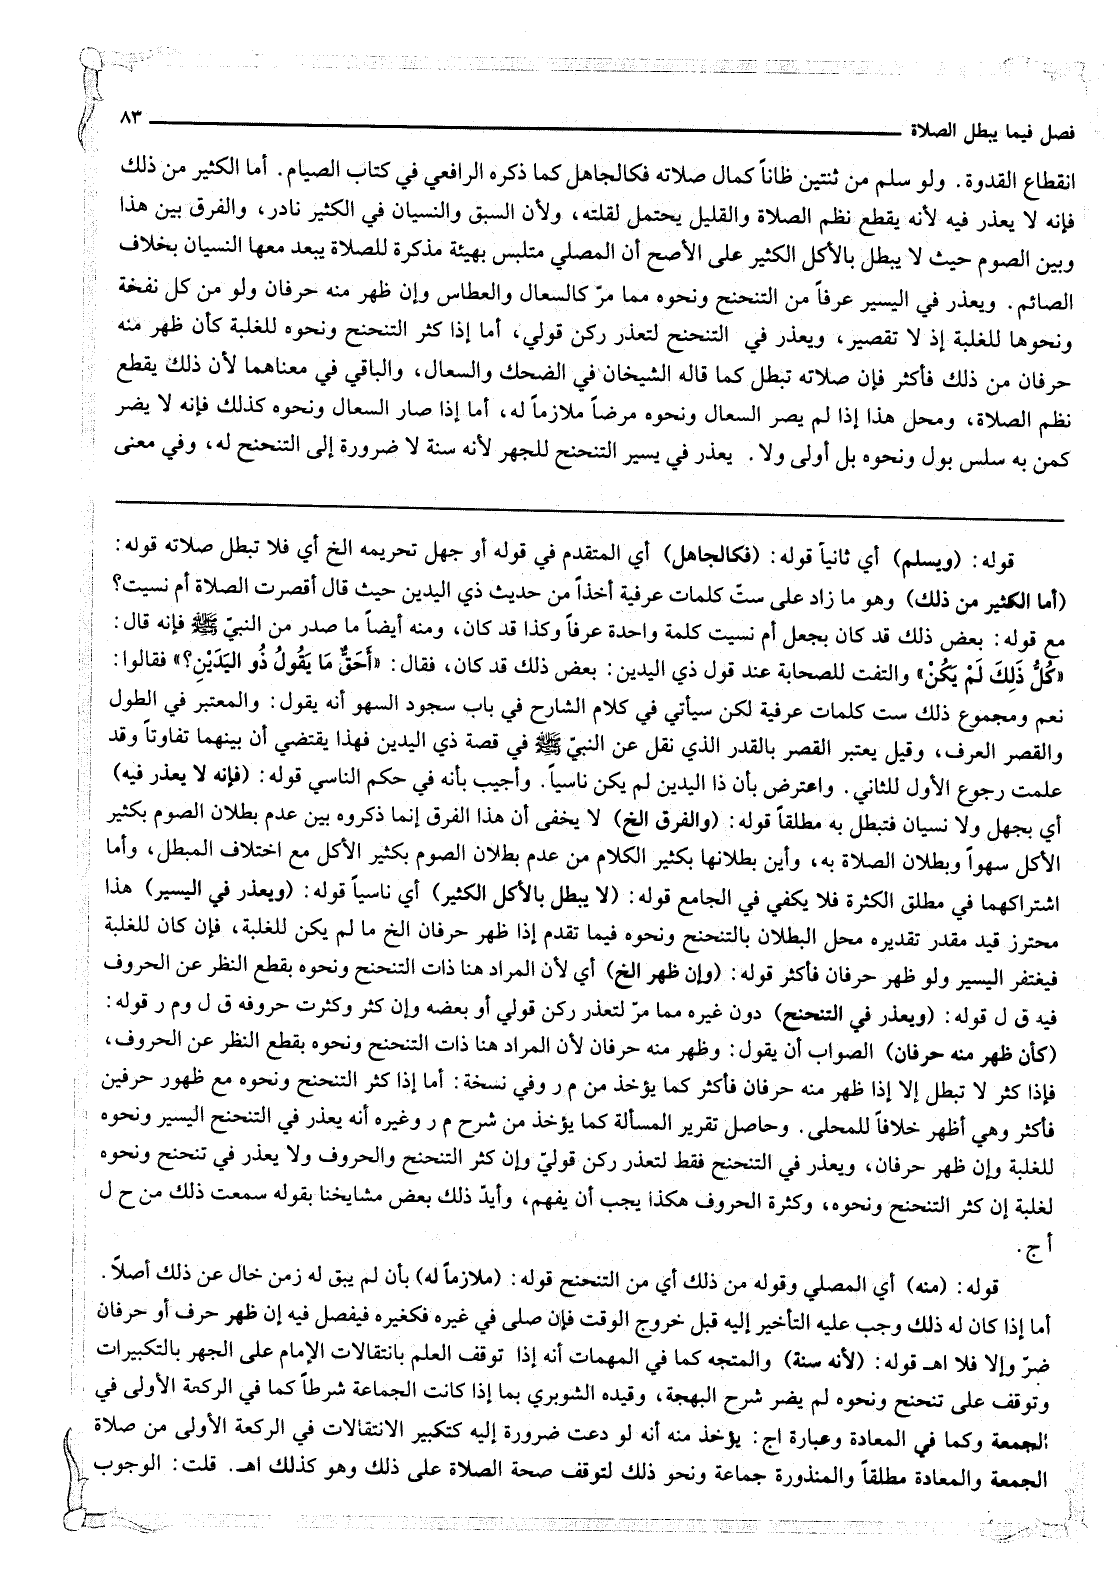 فصل فيما يبطل الصلاة ٨٣
انقطاع القدوة. ولو سلم من ثنتين ظاناً كمال صلاته فكالجاهل كما ذكره الرافعي في كتاب الصيام. أما الكثير من ذلك
فإنه لا يعذر فيه لأنه يقطع نظم الصلاة والقليل يحتمل لقلته، ولأن السبق والنسيان في الكثير نادر، والفرق بين هذا
وبين الصوم حيث لا يبطل بالأكل الكثير على الأصح أن المصلي متلبس بهيئة مذكرة للصلاة يبعد معها النسيان بخلاف
الصائم. ويعذر في اليسير عرفاً من التنحنح ونحوه مما مرّ كالسعال والعطاس وإن ظهر منه حرفان ولو من كل نفخة
ونحوها للغلبة إذ لا تقصير، ويعذر في التنحنح لتعذر ركن قولي، أما إذا كثر التنحنح ونحوه للغلبة كأن ظهر منه
حرفان من ذلك فأكثر فإن صلاته تبطل كما قاله الشيخان في الضحك والسعال، والباقي في معناهما لأن ذلك يقطع
نظم الصلاة، ومحل هذا إذا لم يصر السعال ونحوه مرضاً ملازماً له، أما إذا صار السعال ونحوه كذلك فإنه لا يضر
كمن به سلس بول ونحوه بل أولى ولا. يعذر في يسير التنحنح للجهر لأنه سنة لا ضرورة إلى التنحنح له، وفي معنى
قوله: (ويسلم) أي ثانياً قوله: (فكالجاهل) أي المتقدم في قوله أو جهل تحريمه الخ أي فلا تبطل صلاته قوله:
(أما الكثير من ذلك) وهو ما زاد على ستّ كلمات عرفية أخذاً من حديث ذي اليدين حيث قال أقصرت الصلاة أم نسيت؟
مع قوله: بعض ذلك قد كان بجعل أم نسيت كلمة واحدة عرفاً وكذا قد كان، ومنه أيضاً ما صدر من النبيّ ﷺ فإنه قال:
«كُلُّ ذَلِكَ لَمْ يَكُنْ» والتفت للصحابة عند قول ذي اليدين: بعض ذلك قد كان، فقال: «أَحَقٌّ مَا يَقُولُ ذُو اليَدَيْنِ؟» فقالوا:
نعم ومجموع ذلك ست كلمات عرفية لكن سيأتي في كلام الشارح في باب سجود السهو أنه يقول: والمعتبر في الطول
والقصر العرف، وقيل يعتبر القصر بالقدر الذي نقل عن النبيّ ﷺ في قصة ذي اليدين فهذا يقتضي أن بينهما تفاوتاً وقد
علمت رجوع الأول للثاني. واعترض بأن ذا اليدين لم يكن ناسياً. وأجيب بأنه في حكم الناسي قوله: (فإنه لا يعذر فيه)
أي بجهل ولا نسيان فتبطل به مطلقاً قوله: (والفرق الخ) لا يخفى أن هذا الفرق إنما ذكروه بين عدم بطلان الصوم بكثير
الأكل سهواً وبطلان الصلاة به، وأين بطلانها بكثير الكلام من عدم بطلان الصوم بكثير الأكل مع اختلاف المبطل، وأما
اشتراكهما في مطلق الكثرة فلا يكفي في الجامع قوله: (لا يبطل بالأكل الكثير) أي ناسياً قوله: (ويعذر في اليسير) هذا
محترز قيد مقدر تقديره محل البطلان بالتنحنح ونحوه فيما تقدم إذا ظهر حرفان الخ ما لم يكن للغلبة، فإن كان للغلبة
فيغتفر اليسير ولو ظهر حرفان فأكثر قوله: (وإن ظهر الخ) أي لأن المراد هنا ذات التنحنح ونحوه بقطع النظر عن الحروف
فيه ق ل قوله: (ويعذر في التنحنح) دون غيره مما مرّ لتعذر ركن قولي أو بعضه وإن كثر وكثرت حروفه ق ل وم ر قوله:
(كأن ظهر منه حرفان) الصواب أن يقول: وظهر منه حرفان لأن المراد هنا ذات التنحنح ونحوه بقطع النظر عن الحروف،
فإذا كثر لا تبطل إلا إذا ظهر منه حرفان فأكثر كما يؤخذ من م ر وفي نسخة: أما إذا كثر التنحنح ونحوه مع ظهور حرفين
فأكثر وهي أظهر خلافاً للمحلى. وحاصل تقرير المسألة كما يؤخذ من شرح م ر وغيره أنه يعذر في التنحنح اليسير ونحوه
للغلبة وإن ظهر حرفان، ويعذر في التنحنح فقط لتعذر ركن قوليّ وإن كثر التنحنح والحروف ولا يعذر في تنحنح ونحوه
لغلبة إن كثر التنحنح ونحوه، وكثرة الحروف هكذا يجب أن يفهم، وأيدّ ذلك بعض مشايخنا بقوله سمعت ذلك من ح ل
أ ج.
قوله: (منه) أي المصلي وقوله من ذلك أي من التنحنح قوله: (ملازماً له) بأن لم يبق له زمن خال عن ذلك أصلاً.
أما إذا كان له ذلك وجب عليه التأخير إليه قبل خروج الوقت فإن صلى في غيره فكغيره فيفصل فيه إن ظهر حرف أو حرفان
ضرّ وإلا فلا اهـ قوله: (لأنه سنة) والمتجه كما في المهمات أنه إذا توقف العلم بانتقالات الإمام على الجهر بالتكبيرات
وتوقف على تنحنح ونحوه لم يضر شرح البهجة، وقيده الشوبري بما إذا كانت الجماعة شرطاً كما في الركعة الأولى في
الجمعة وكما في المعادة وعبارة اج: يؤخذ منه أنه لو دعت ضرورة إليه كتكبير الانتقالات في الركعة الأولى من صلاة
الجمعة والمعادة مطلقاً والمنذورة جماعة ونحو ذلك لتوقف صحة الصلاة على ذلك وهو كذلك اهـ. قلت: الوجوب